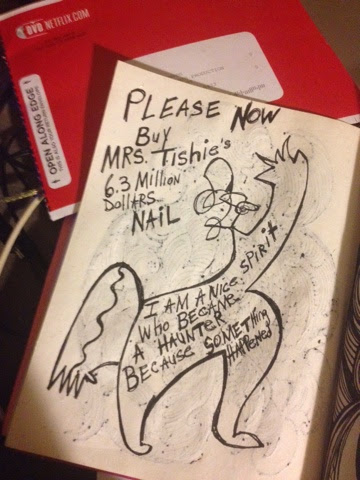 DVD NETFLIX.COM
OPEN ALONG EDGE
PLEASE NOW
BUY
MRS. Tishie's
6.3 Million
Dollars
NAiL
I AM A NICE SPIRIT
WHO BECAME
A HAUNTER
BECAUSE SOMETHING
HAPPENED